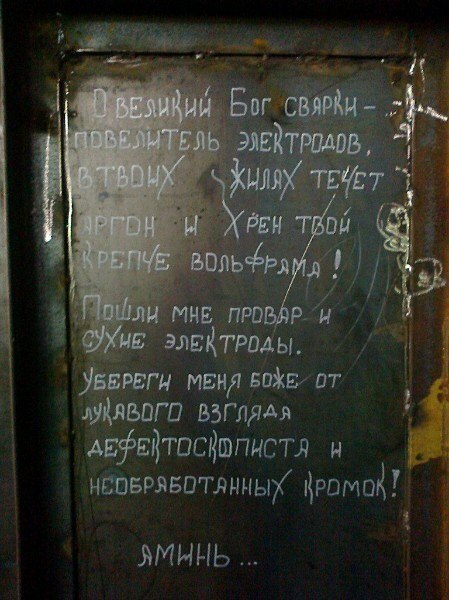 О великий Бог сварки –
повелитель электродов,
в твоих жилах течет
аргон и Хрен твой
крепче вольфрама!
Пошли мне провар и
сухие электроды.
Убереги меня боже от
лукавого взгляда
дефектоскописта и
необработанных кромок!
Аминь...